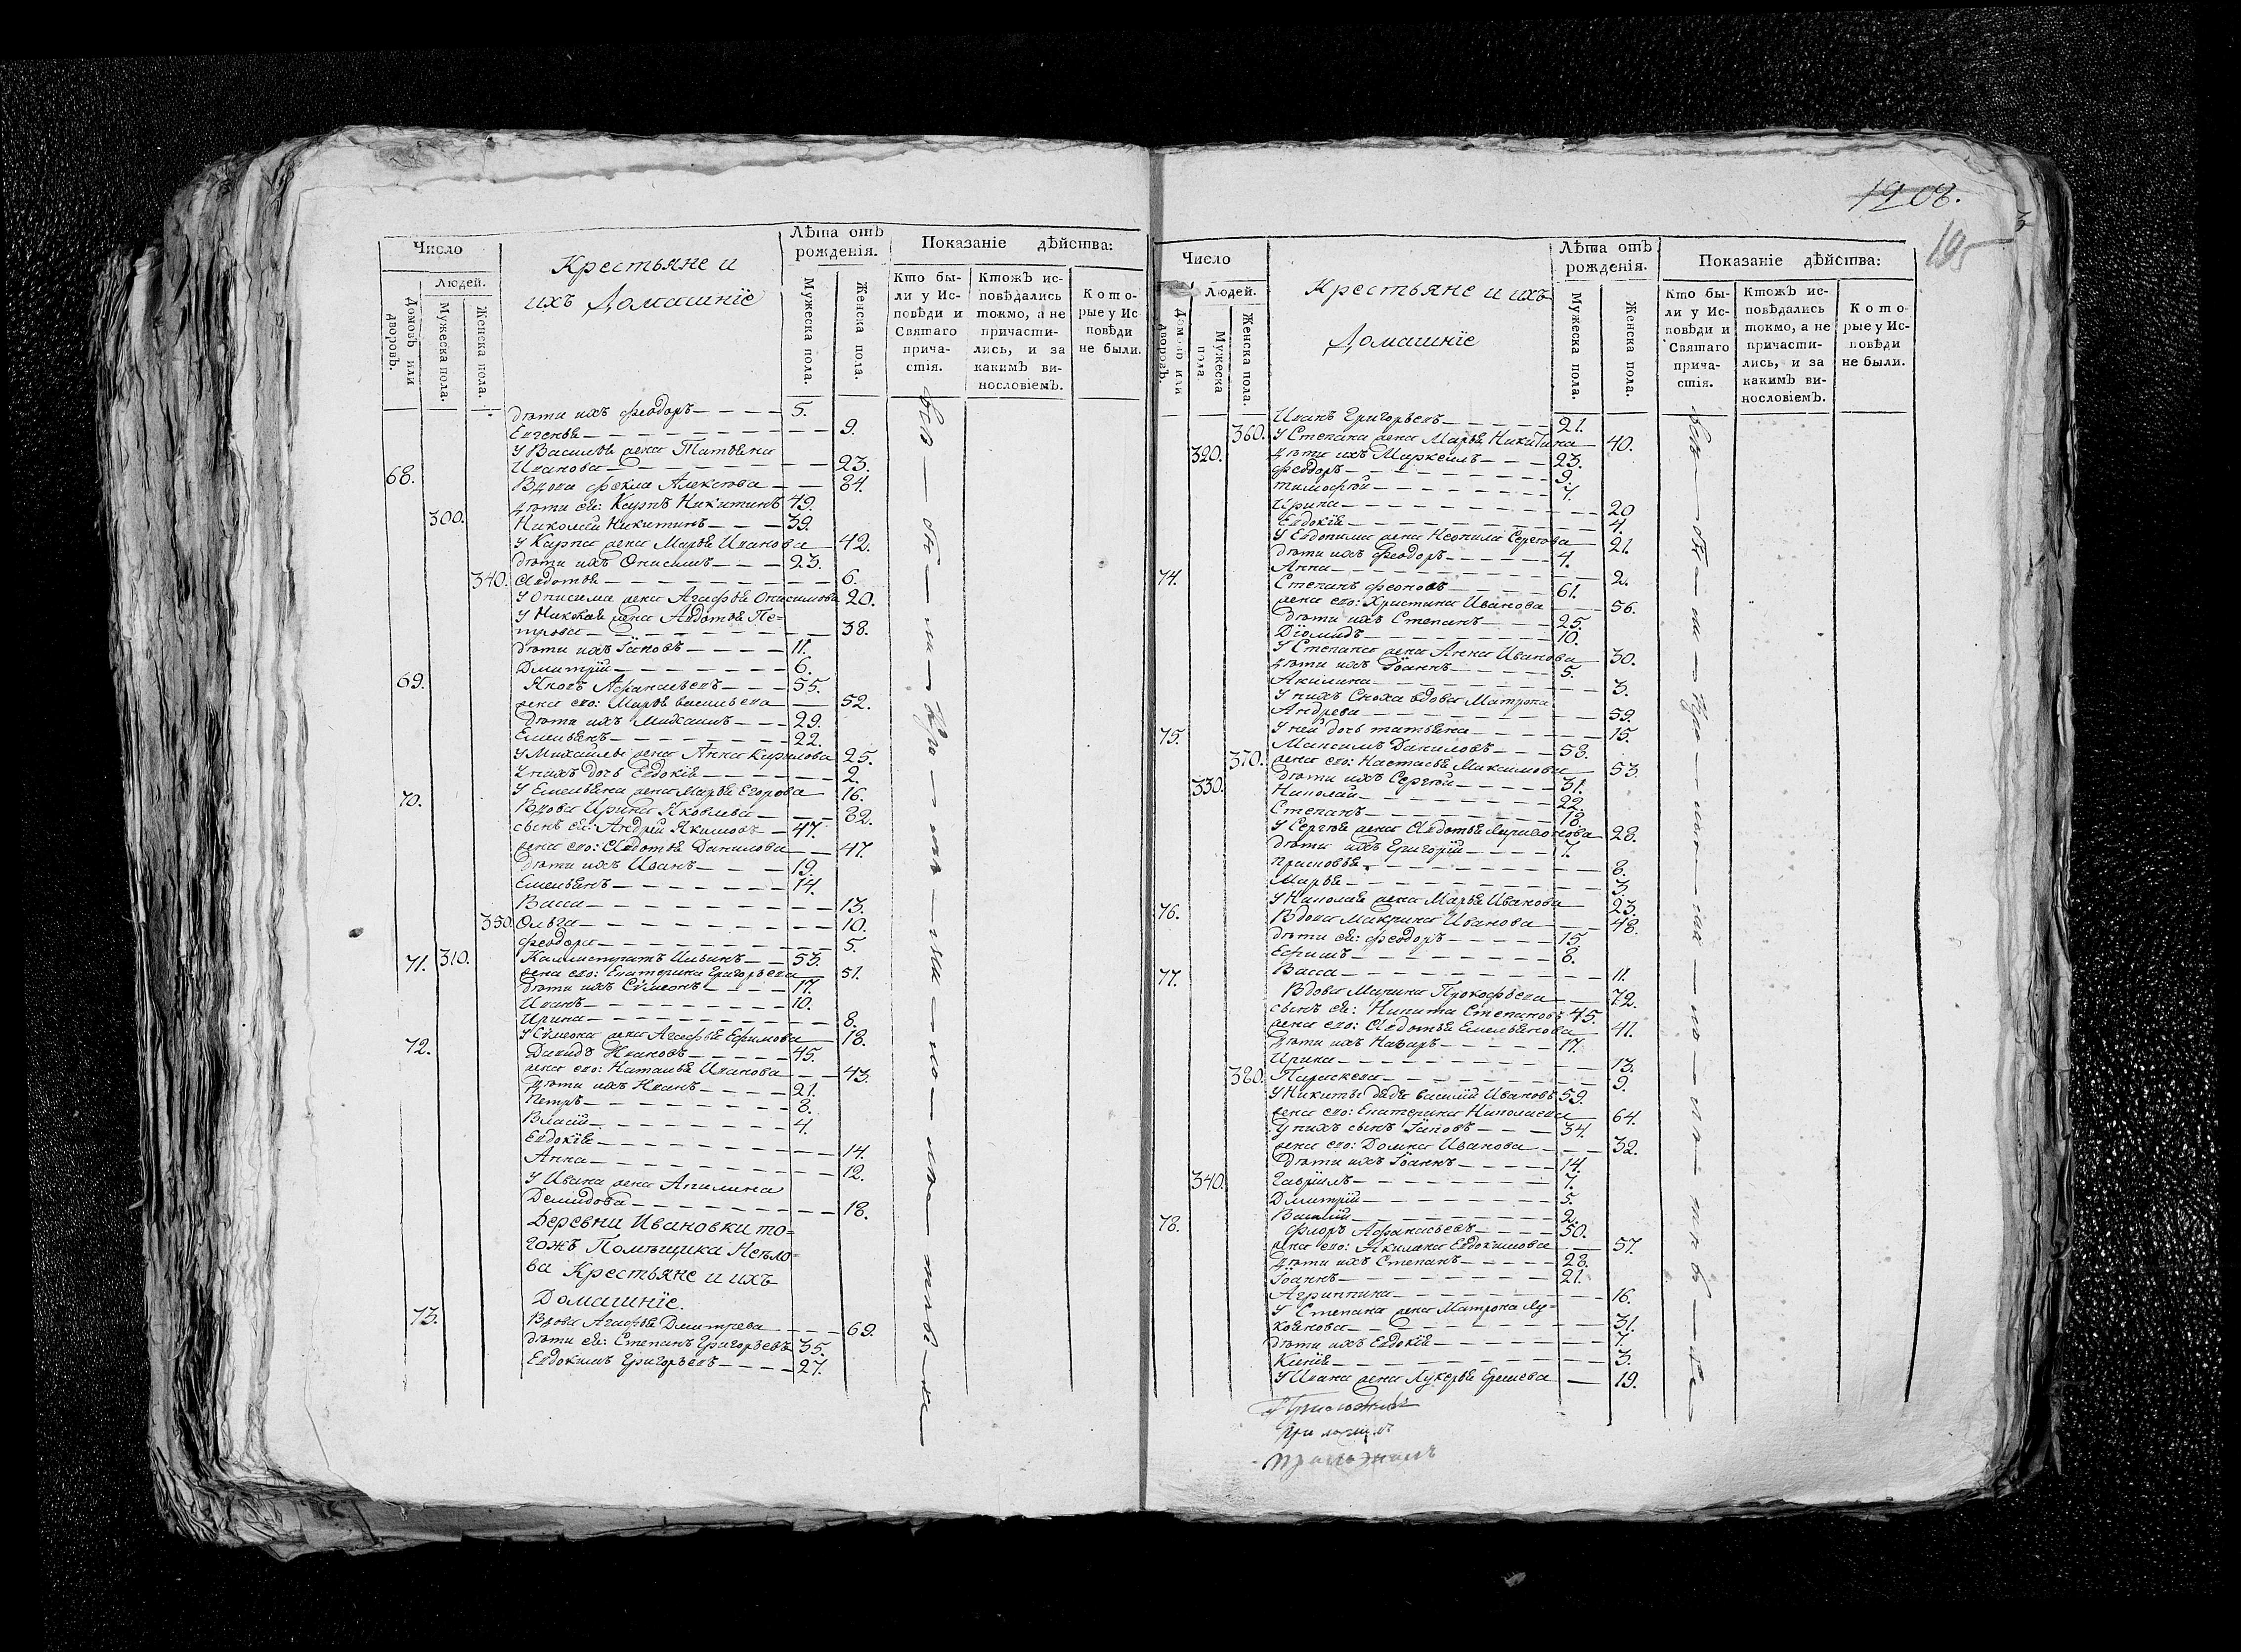 1208.
105
3
Число
Людей.
Домовъ или дворовъ.
Мужеска пола.
Женска пола.
Крестьяне и
ихъ Домашнїе
Лѣта отъ рожденія.
Мужеска пола.
Женска пола.
Показаніе дѣйства:
Кто бы-
ли у Ис-
повѣди и
Святаго
прича-
стія.
Ктожъ ис-
повѣдались
токмо, а не
причасти-
лись, и за
какимъ ви-
нословіемъ.
Кото-
рые у Ис
повѣди
не были.
дѣти ихъ Феодоръ 5.
Евгенья 9.
У Василья жена Татьяна
Иванова 23.
68. Вдова Фекла Алексѣева 84.
дѣти ей: Карпъ Никитинъ 49.
300. Николай Никитинъ 39.
У Карпа жена Марья Иванова 42.
дѣти ихъ Онисимъ 23.
340. Авдотья 6.
У Онисима жена Агафья Онисимова 20.
У Николая жена Авдотья Пе=
трова 38.
дѣти ихъ Іаковъ 11.
Дмитрїй 6.
69. Яковъ Афанасьевъ 55.
жена его: Марья Васильева 52.
дѣти ихъ Михаилъ 29.
Емельянъ 22.
У Михайлы жена Анна Кирилова 25.
У нихъ дочь Евдокїя 2.
У Емельяна жена Марья Егорова 16.
70. Вдова Ирина Яковлева 82.
сынъ ей: Андрей Якимовъ 47.
жена его: Авдотья Данилова 47.
дѣти ихъ Иванъ 19.
Емельянъ 14.
Васса 13.
350. Ольга 10.
Феодора 5.
71. 310. Каллистратъ Ильинъ 53.
жена его: Екатерина Григорьева 51.
дѣти ихъ Сѵмеонъ 17.
Иванъ 10.
Ирина 8.
У Сѵмеона жена Агафья Ефимова 18.
72. Давидъ Ивановъ 45.
жена его: Наталья Иванова 43.
дѣти ихъ Иванъ 21.
Петръ 8.
Власїй 4.
Евдокїя 14.
Анна 12.
У Ивана жена Акилина
Демидова 18.
Деревни Ивановки то=
гожъ Помѣщика Неѣло=
ва Крестьяне и ихъ
Домашнїе.
73. Вдова Агафья Дмитрева 69.
дѣти ей: Степанъ Григорьевъ 35.
Евдокимъ Григорьевъ 27.
Число
Людей.
Домовъ или дворовъ.
Мужеска пола.
Женска пола.
Крестьяне и ихъ
Домашнїе
Лѣта отъ рожденія.
Мужеска пола.
Женска пола.
Показаніе дѣйства:
Кто бы-
ли у Ис-
повѣди и
Святаго
прича-
стія.
Ктожъ ис-
повѣдались
токмо, а не
причасти-
лись, и за
какимъ ви-
нословіемъ.
Кото-
рые у Ис-
повѣди
не были.
Иванъ Григорьевъ 21.
360. У Степана жена Марья Никитина 40.
320. дѣти ихъ Маркелъ 23.
Феодоръ 9.
Тимофей 7.
Ирина 20
Евдокїя 4.
У Евдокима жена Неонила Сергѣева 21.
дѣти ихъ Феодоръ 4.
Анна 2.
74. Степанъ Феоновъ 61.
жена его: Христина Иванова 56.
дѣти ихъ Степанъ 25.
Дїомидъ 10.
У Степана жена Анна Иванова 30.
дѣти ихъ Їоаннъ 5.
Акилина 3.
У нихъ Сноха вдова Матрона
Андрева 59.
У ней дочь Татьяна 15.
75. Максимъ Даниловъ 58.
370. жена его: Настасья Максимова 53.
дѣти ихъ Сергѣй 31.
330. Николай 22.
Степанъ 18.
У Сергѣя жена Авдотья Ларионова 28.
дѣти ихъ Григорїй 7.
Прасковья 8.
Марья 3.
У Николая жена Марья Иванова 23.
76. Вдова Макрина Иванова 48.
дѣти ей: Феодоръ 15.
Ефимъ 8.
Васса 11.
77. Вдова Марина Прокофьева 72.
сынъ ей: Никита Степановъ 45.
жена его: Авдотья Емельянова 41.
дѣти ихъ Назаръ 17.
Ирина 13.
380. Параскева 9.
У Никиты дядя Василїй Ивановъ 59.
жена его: Екатерина Николаева 64.
У нихъ сынъ Іаковъ 34.
жена его: Домна Иванова 32.
дѣти ихъ Їоаннъ 14.
340. Гаврїилъ 7.
Дмитрїй 5.
Василїй 2.
78. Флоръ Афанасьевъ 50.
жена его: Акилина Евдокимова 57.
дѣти ихъ Степанъ 28.
Їоаннъ 21.
Агриппина 16.
У Степана жена Матрона Лу=
коянова 31.
дѣти ихъ Евдокїя 7.
Ксенїя 3.
У Ивана жена Лукерья Ермева 19.